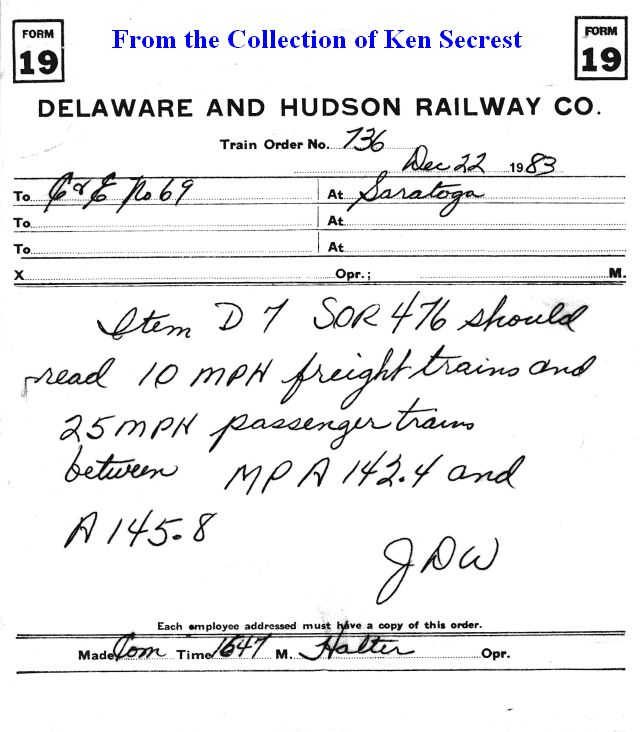 FORM 19
From the Collection of Ken Secrest
FORM 19
DELAWARE AND HUDSON RAILWAY CO.
Train Order No. 736
Dec 22 1983
To C&E No. 69 At Saratoga
To At
To At
X Opr.; M.
Item D 7 SOR 476 should
read 10 MPH freight trains and
25 MPH passenger trains
between MP A 142.4 and
A 145.8
JDW
Each employee addressed must have a copy of this order.
Made Com Time 1647 M. Halter Opr.